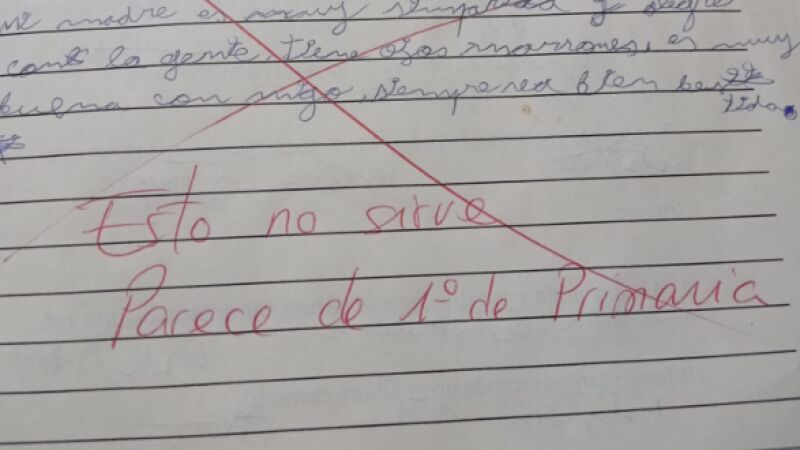 mi madre es muy simpatica y alegre
con la gente, tiene ojos marrones, es muy
buena con migo, siempre va bien bes
tida.
Esto no sirve
Parece de 1º de Primaria